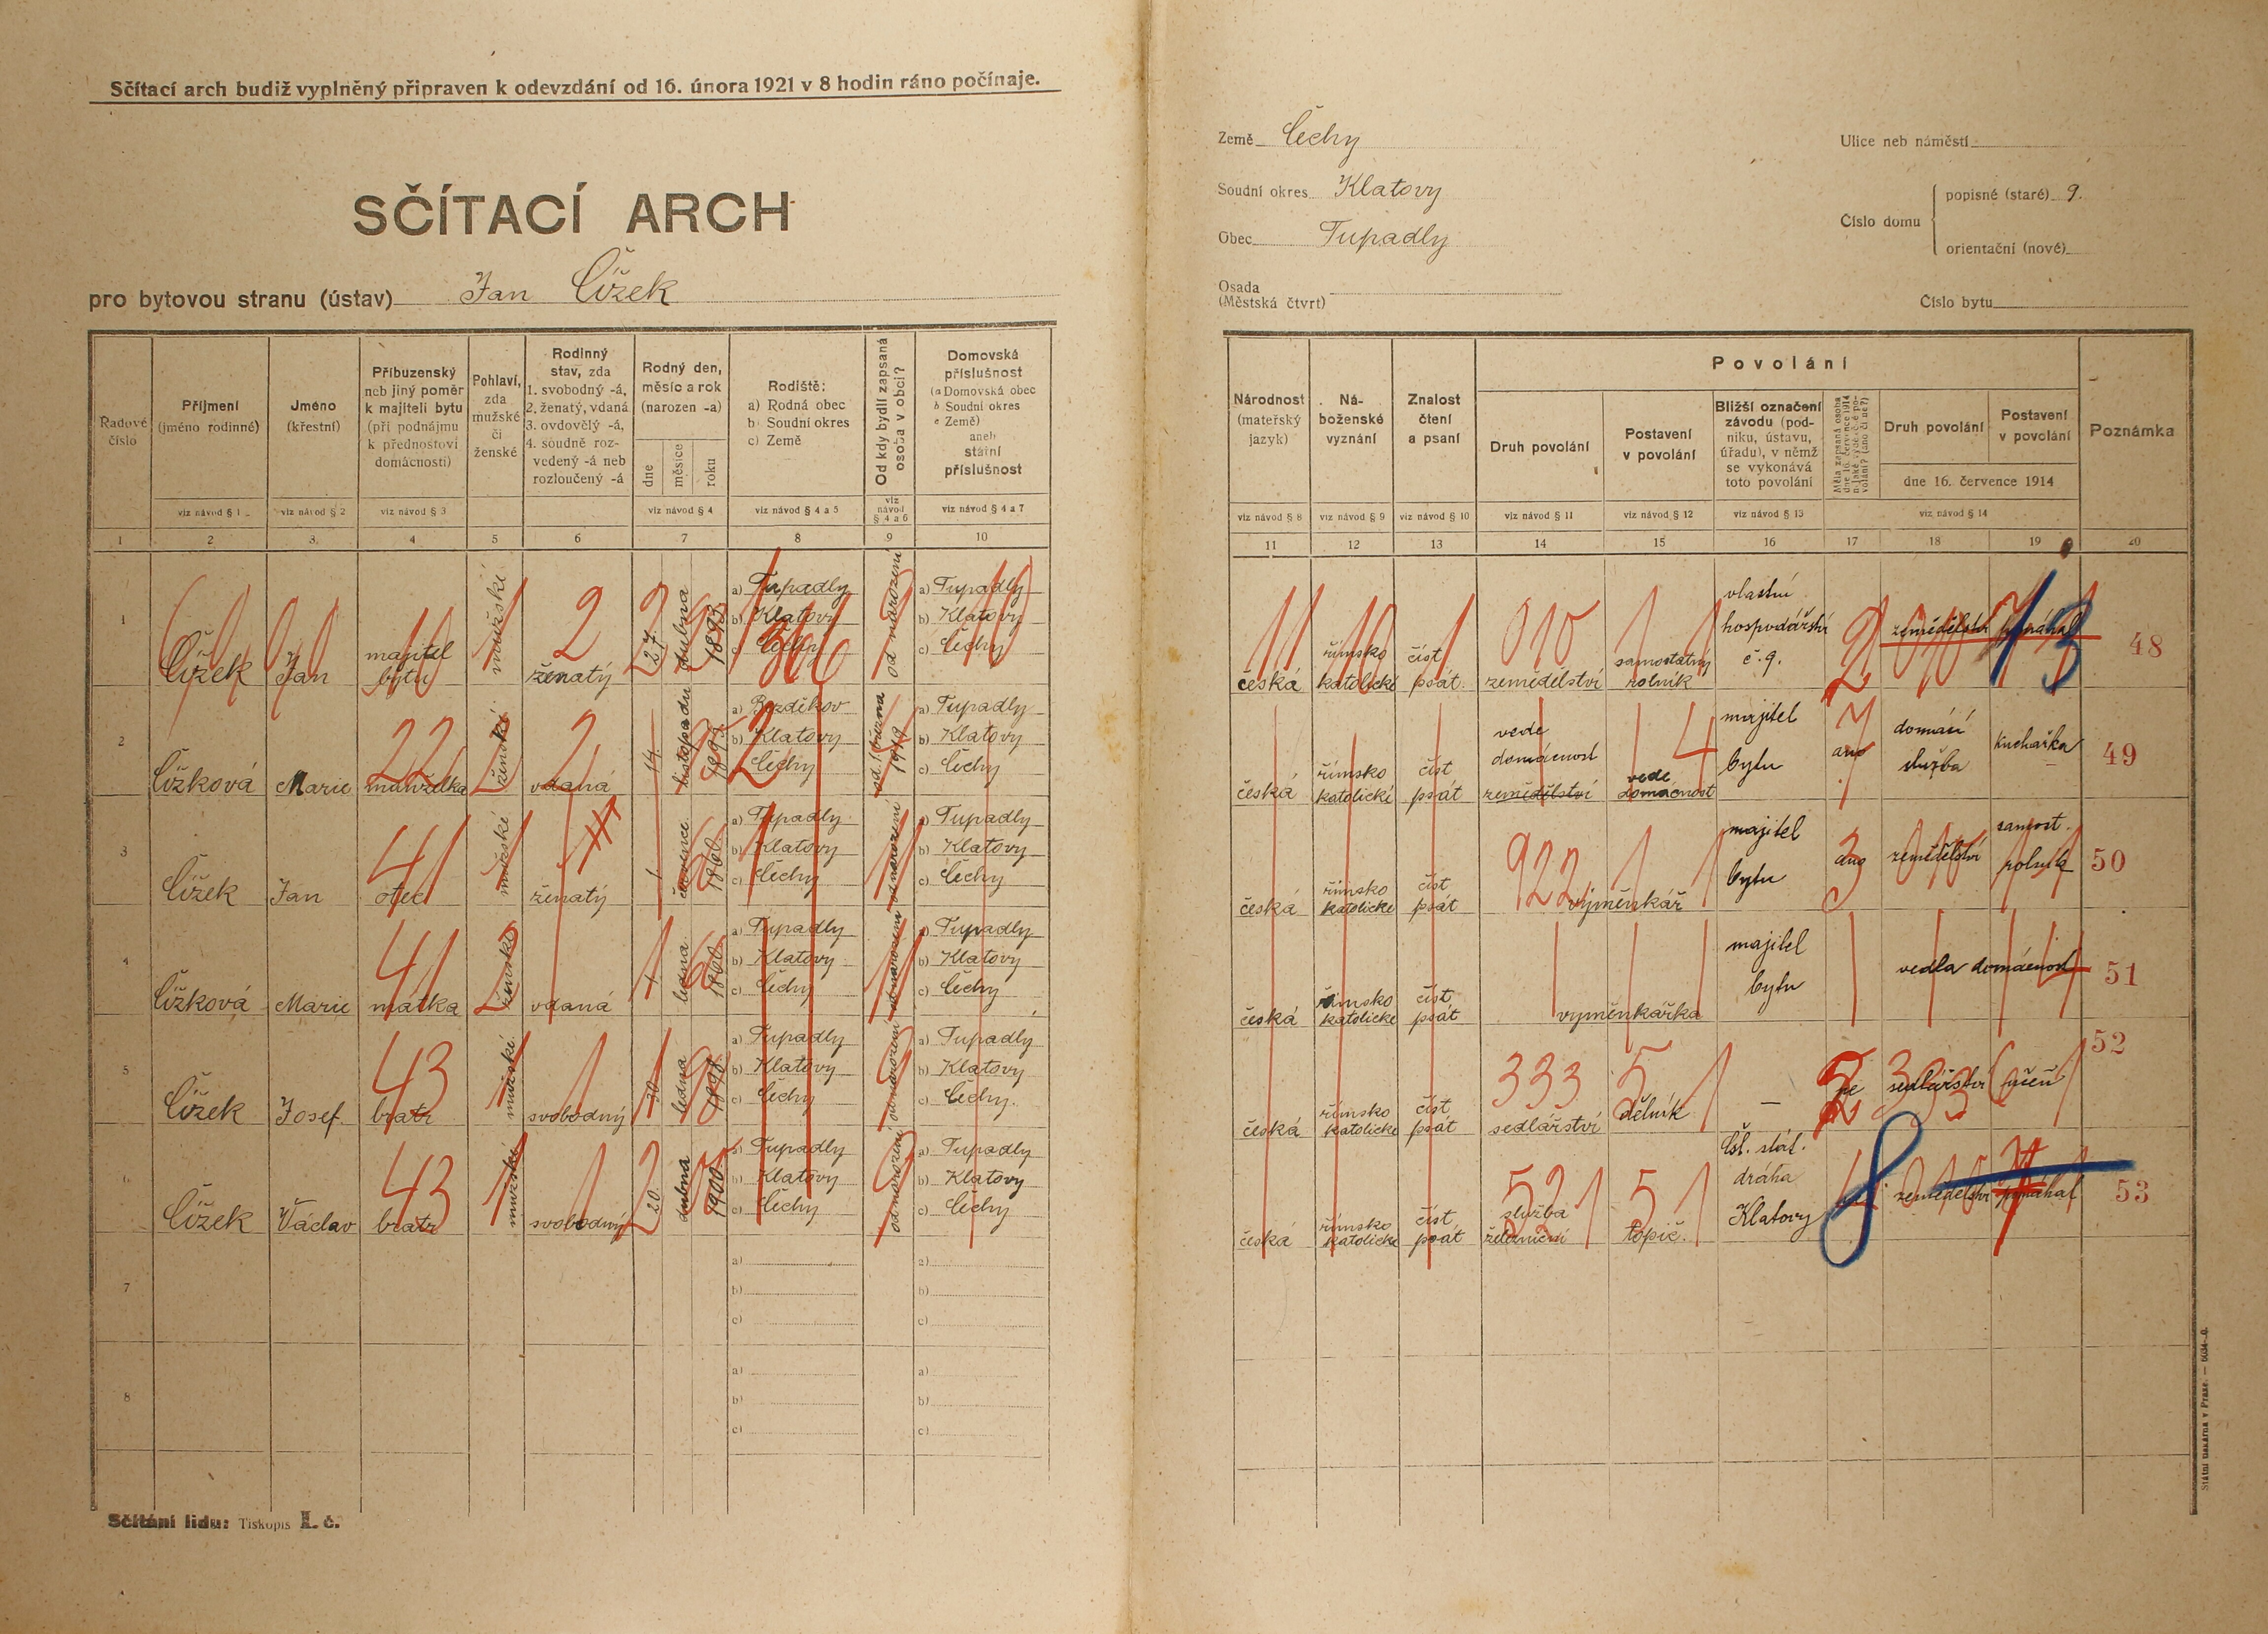 Sčítací arch budiž vyplněný připraven k odevzdání od 16. února 1921 v 8 hodin ráno počínaje.
SČÍTACÍ ARCH
pro bytovou stranu (ústav) Jan Čížek
Země Čechy
Soudní okres Klatovy
Obec Tupadly
Osada
(Městská čtvrt)
Ulice neb náměstí
Číslo domu
popisné (staré) 9.
orientační (nové)
Číslo bytu
Řadové číslo
Příjmení
(jméno rodinné)
Jméno
(křestní)
Příbuzenský
neb jiný poměr
k majiteli bytu
(při podnájmu
k přednostovi
domácnosti)
Pohlaví,
zda
mužské
či
ženské
Rodinný
stav, zda
1. svobodný -á,
2. ženatý, vdaná
3. ovdovělý -á,
4. soudně roz-
vedený -á neb
rozloučený -á
Rodný den,
měsíc a rok
(narozen -a)
dne
měsíce
roku
Rodiště:
a) Rodná obec
b) Soudní okres
c) Země
Od kdy bydlí zapsaná
osoba v obci?
Domovská
příslušnost
(a Domovská obec
b Soudní okres
c Země)
aneb
státní
příslušnost
viz návod § 1
viz návod § 2
viz návod § 3
viz návod § 4
viz návod § 4 a 5
viz
návod
§ 4 a 6
viz návod § 4 a 7
1 2 3 4 5 6 7 8 9 10
Národnost
(mateřský
jazyk)
Ná-
boženské
vyznání
Znalost
čtení
a psaní
Povolání
Druh povolání
Postavení
v povolání
Bližší označení
závodu (pod-
niku, ústavu,
úřadu), v němž
se vykonává
toto povolání
Měla zapsaná osoba
dne 16. července 1914
nějaké výdělečné po-
volání? (ano či ne?)
Druh povolání
Postavení
v povolání
dne 16. července 1914
Poznámka
viz návod § 8
viz návod § 9
viz návod § 10
viz návod § 11
viz návod § 12
viz návod § 13
viz návod § 14
11 12 13 14 15 16 17 18 19 20
1 Čížek Jan majitel bytu mužské ženatý 27. dubna 1893
a) Tupadly
b) Klatovy
c) Čechy
od narození
a) Tupadly
b) Klatovy
c) Čechy
česká římsko katolické číst psát. zemědělství samostatný rolník vlastní hospodářství č. 9. zemědělství pomáhal 48
2 Čížková Marie manželka ženské vdaná 14. listopadu
a) Bezděkov
b) Klatovy
c) Čechy
od 1. března 1919
a) Tupadly
b) Klatovy
c) Čechy
česká římsko katolické číst psát vede domácnost zemědělství vede domácnost majitel bytu ano domácí služba kuchařka 49
3 Čížek Jan otec mužské ženatý 1 července
a) Tupadly
b) Klatovy
c) Čechy
od narození
a) Tupadly
b) Klatovy
c) Čechy
česká římsko katolické číst psát 922 výměnkář majitel bytu ano zemědělství samost. rolník 50
4 Čížková Marie matka ženské vdaná 1 ledna
a) Tupadly
b) Klatovy
c) Čechy
od narození
a) Tupadly
b) Klatovy
c) Čechy
česká římsko katolické číst psát výměnkářka majitel bytu vedla domácnost 51
5 Čížek Josef bratr mužské svobodný 30 ledna 1898
a) Tupadly
b) Klatovy
c) Čechy
od narození
a) Tupadly
b) Klatovy
c) Čechy.
česká římsko katolické číst psát 333 sedlářství dělník – ne sedlářství učeň 52
6 Čížek Václav bratr mužské svobodný 20. dubna 1900
a) Tupadly
b) Klatovy
c) Čechy
od narození
a) Tupadly
b) Klatovy
c) Čechy
česká římsko katolické číst psát 521 služba železniční topič. Čsl. stát. dráha Klatovy zemědělství pomáhal 53
7
a)
b)
c)
a)
b)
c)
8
a)
b)
c)
a)
b)
c)
Sčítání lidu: Tiskopis I. č.
Státní tiskárna v Praze. — 6034-0.